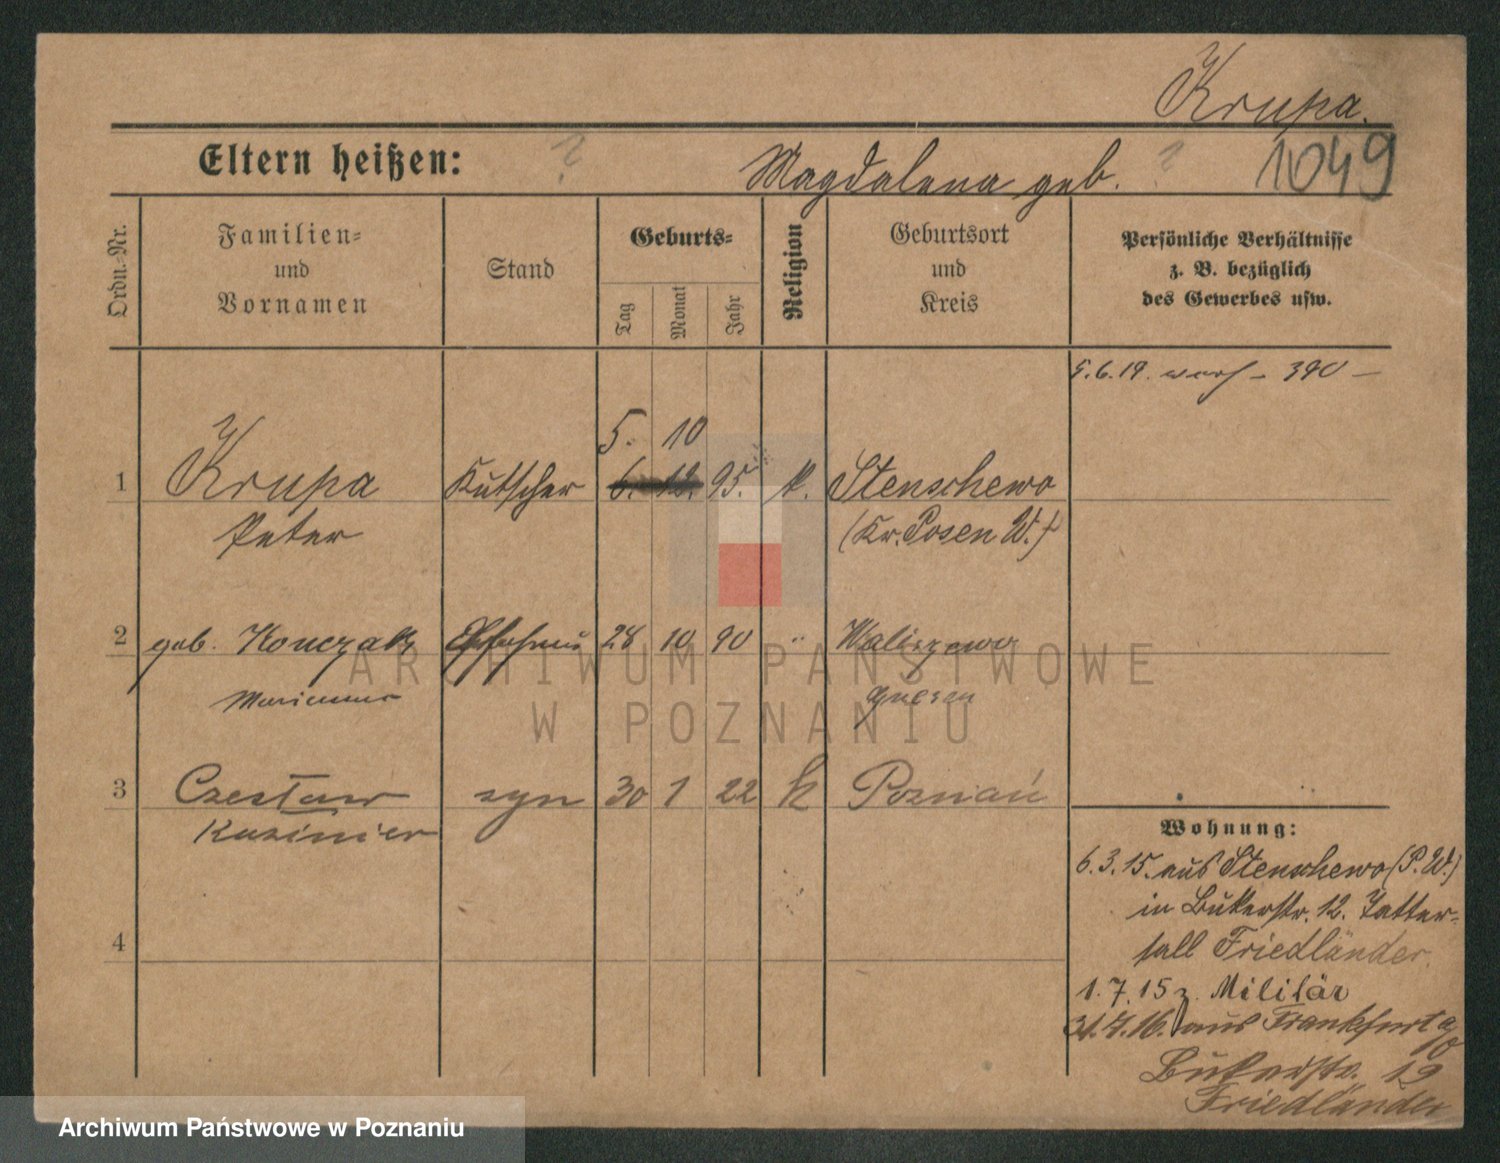 Krupa.
Eltern heißen: ? Magdalena geb. ? 1049
Ordn.-Nr.
Familien-
und
Vornamen
Stand
Geburts-
Tag
Monat
Jahr
Religion
Geburtsort
und
Kreis
Persönliche Verhältnisse
z. B. bezüglich
des Gewerbes usw.
5.6.19. 390 —
5. 10
1 Krupa Kutscher 6. 12. 95. k. Stenschewo
Peter (Kr. Posen W.)
2 geb. Konczak Ehefrau 28 10 90 " Waliszewo
Marianna Gnesen
3 Czesław syn 30 1 22 k Poznań
Kazimier
4
Wohnung:
6.3.15. aus Stenschewo (P. W.)
in Bukerstr. 12. Tatter-
sall Friedländer.
1.7.15 z. Militär
31.7.16. aus Frankfurt a/O
Bukerstr. 12
Friedländer
ARCHIWUM PAŃSTWOWE
W POZNANIU
Archiwum Państwowe w Poznaniu